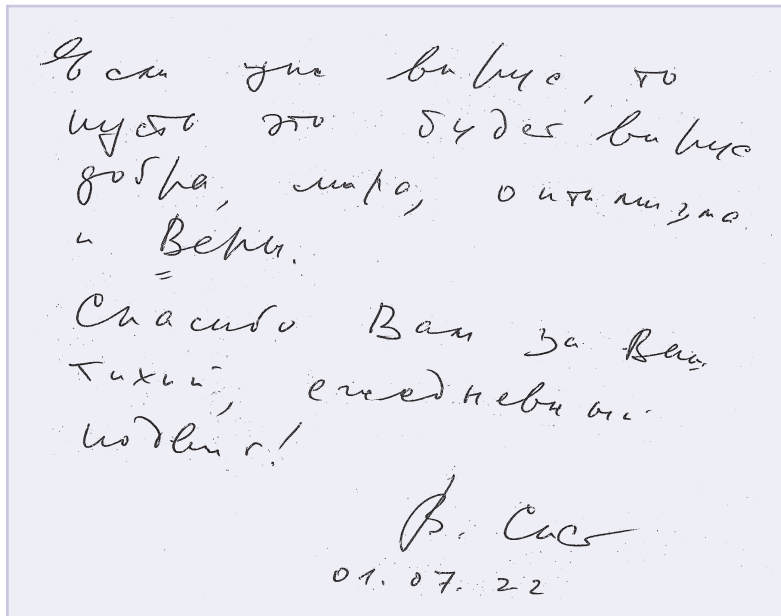 Если уже вирус, то
пусть это будет вирус
добра, мира, оптимизма
и Веры.
Спасибо Вам за Ваш
тихий, ежедневный
подвиг!
В.
01.07.22